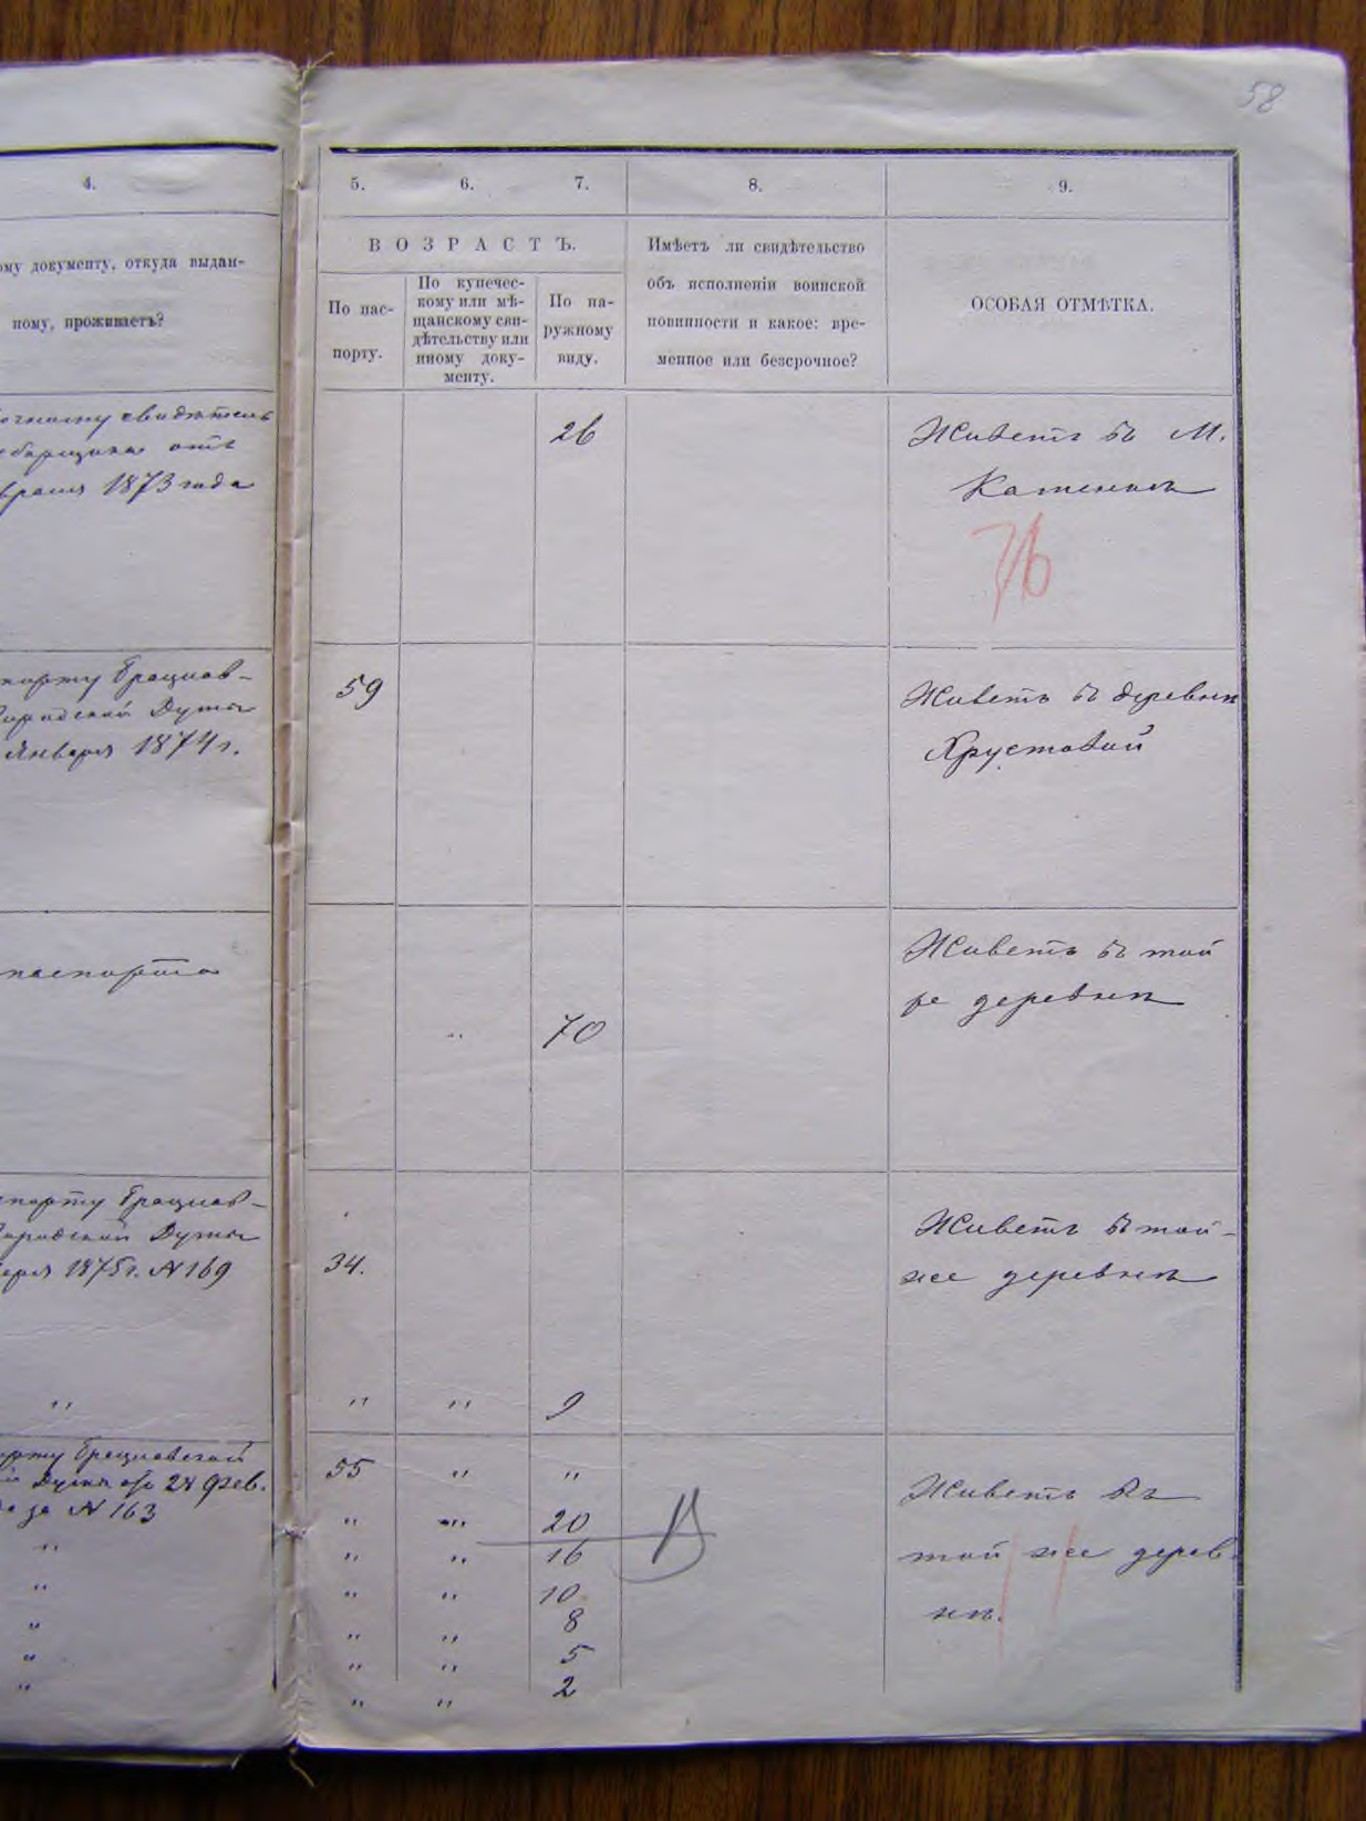 58
4.
5.
6.
7.
8.
9.
ому документу, откуда выдан-
ному, проживаетъ?
ВОЗРАСТЪ.
По пас-
порту.
По купечес-
кому или мѣ-
щанскому сви-
дѣтельству или
иному доку-
менту.
По на-
ружному
виду.
Имѣетъ ли свидѣтельство
объ исполненіи воинской
повинности и какое: вре-
менное или безсрочное?
ОСОБАЯ ОТМѢТКА.
свидѣтель
отъ
1873 года
26
Живетъ въ М.
Каменкѣ
порту Брацлав-
Городской Думы
Января 1874 г.
59
Живетъ въ деревнѣ
Хрустовой
паспорта
"
70
Живетъ въ той
же деревнѣ
порту Брацлав-
Городской Думы
1875 г. № 169
34.
Живетъ въ той-
же деревнѣ
" " " 9
порту Брацлавской
Думы отъ 24 фев.
за № 163
55 " "
" " " 20
" " 16
" " " 10
" " " 8
" " " 5
" " " 2
Живетъ въ
той же дерев-
нѣ.